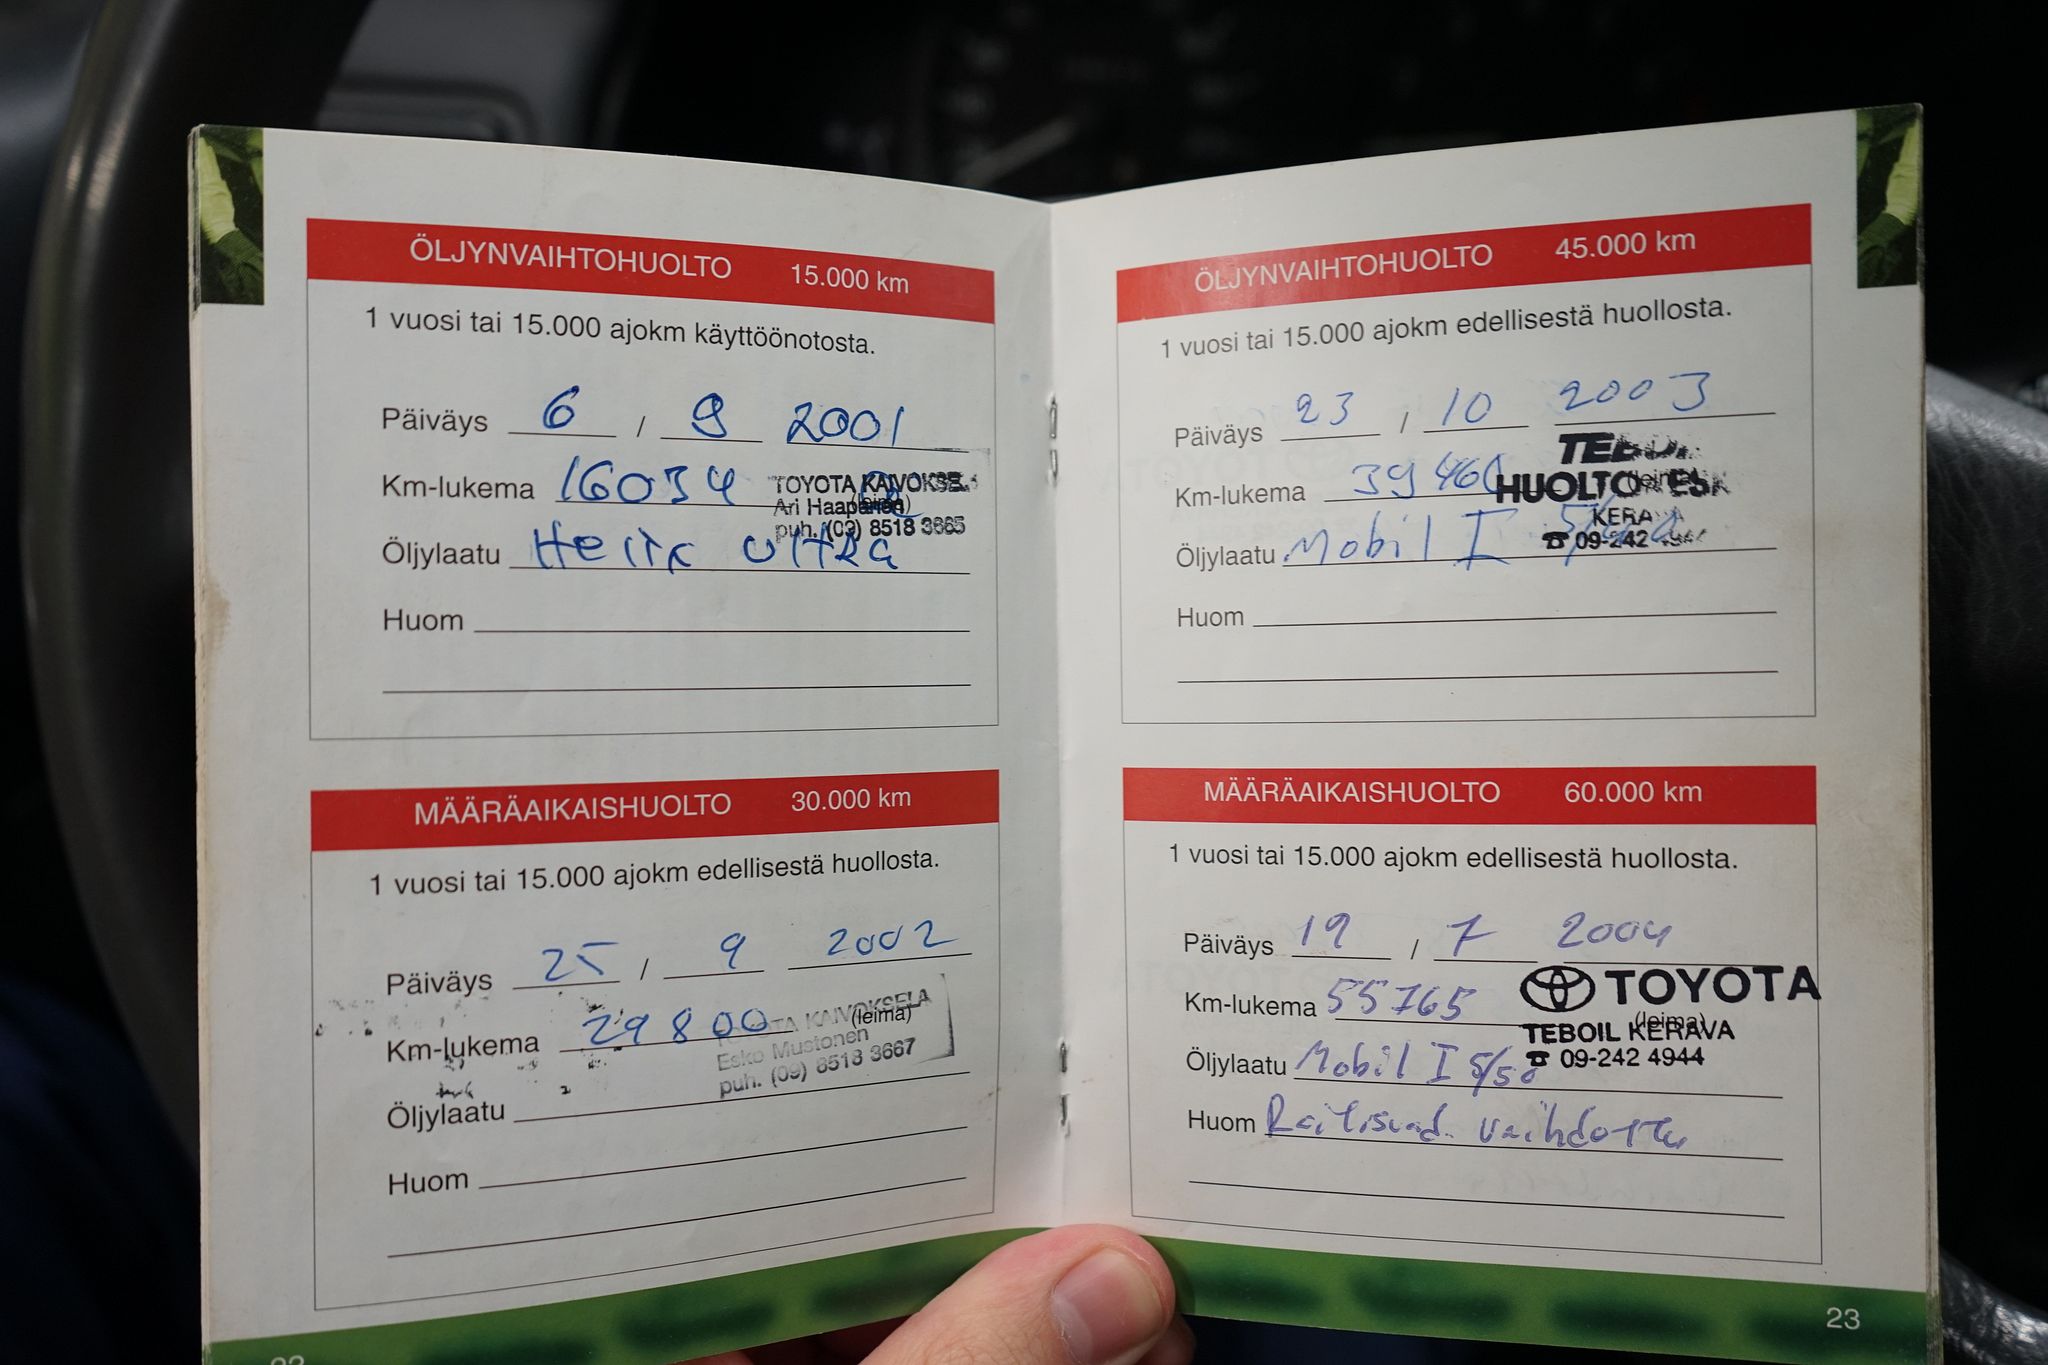 ÖLJYNVAIHTOHUOLTO 15.000 km
1 vuosi tai 15.000 ajokm käyttöönotosta.
Päiväys 6 / 9 2001
Km-lukema 16034
TOYOTA KAIVOKSELA
Ari Haapanen (leima)
puh. (09) 8518 3665
Öljylaatu Helix ultra
Huom
MÄÄRÄAIKAISHUOLTO 30.000 km
1 vuosi tai 15.000 ajokm edellisestä huollosta.
Päiväys 25 / 9 2002
Km-lukema 29800 (leima)
TOYOTA KAIVOKSELA
Esko Mustonen
puh. (09) 8518 3667
Öljylaatu
Huom
ÖLJYNVAIHTOHUOLTO 45.000 km
1 vuosi tai 15.000 ajokm edellisestä huollosta.
Päiväys 23 / 10 2003
TEBOIL
Km-lukema 39460 (leima)
HUOLTO
KERAVA
09-242 4944
Öljylaatu Mobil I
Huom
MÄÄRÄAIKAISHUOLTO 60.000 km
1 vuosi tai 15.000 ajokm edellisestä huollosta.
Päiväys 19 / 7 2004
TOYOTA
Km-lukema 55765 (leima)
TEBOIL KERAVA
09-242 4944
Öljylaatu Mobil I 5/50
Huom Raitisuod. vaihdettu
23